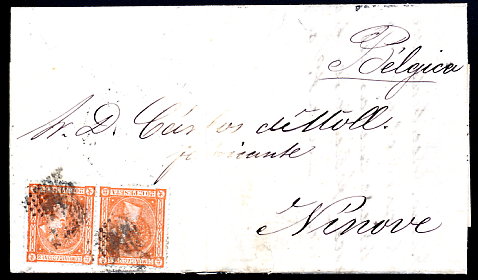 Bélgica
Sr. D. Cárlos de Moll.
fabricante
Ninove